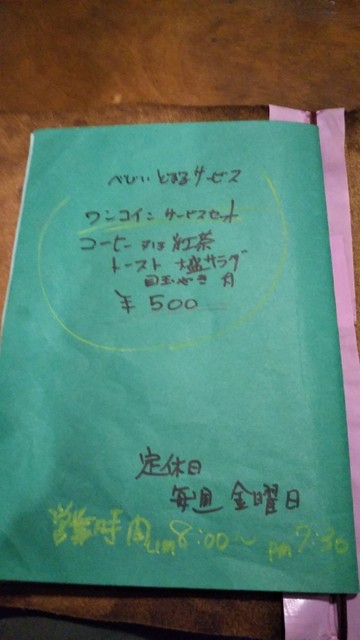 べびい どおる サービス
ワンコイン サービスセット
コーヒー 又は 紅茶
トースト 大盛サラダ
目玉やき 付
¥500
定休日
毎週 金曜日
営業時間 am 8:00〜 pm 7:30